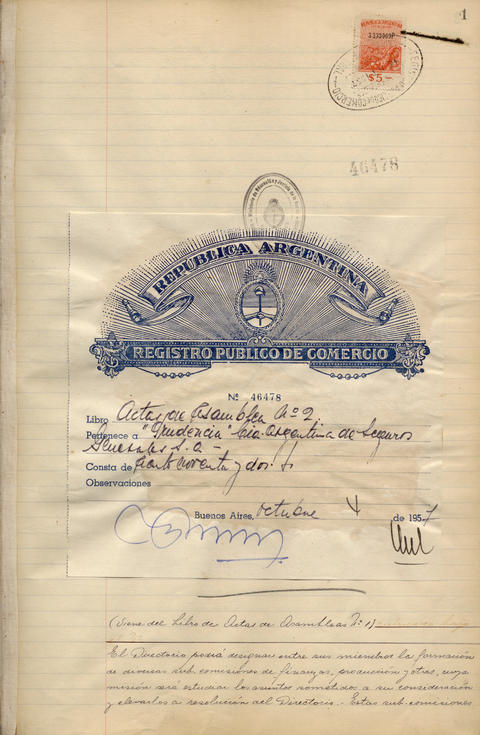 1
$5
46478
REPÚBLICA ARGENTINA
REGISTRO PÚBLICO DE COMERCIO
Nº 46478
Libro Actas de Asamblea Nº 2.
Pertenece a "Prudencia" Cía. Argentina de Seguros
Generales S.A.-
Consta de ciento noventa y dos fs
Observaciones
Buenos Aires, octubre 4 de 1957
(Viene del Libro de Actas de Asambleas Nº 1)
El Directorio podrá designar entre sus miembros la formación
de diversas sub comisiones de finanzas, producción y otras, cuya
misión será estudiar los asuntos sometidos a su consideración
y elevarlos a resolución del Directorio.- Estas sub-comisiones